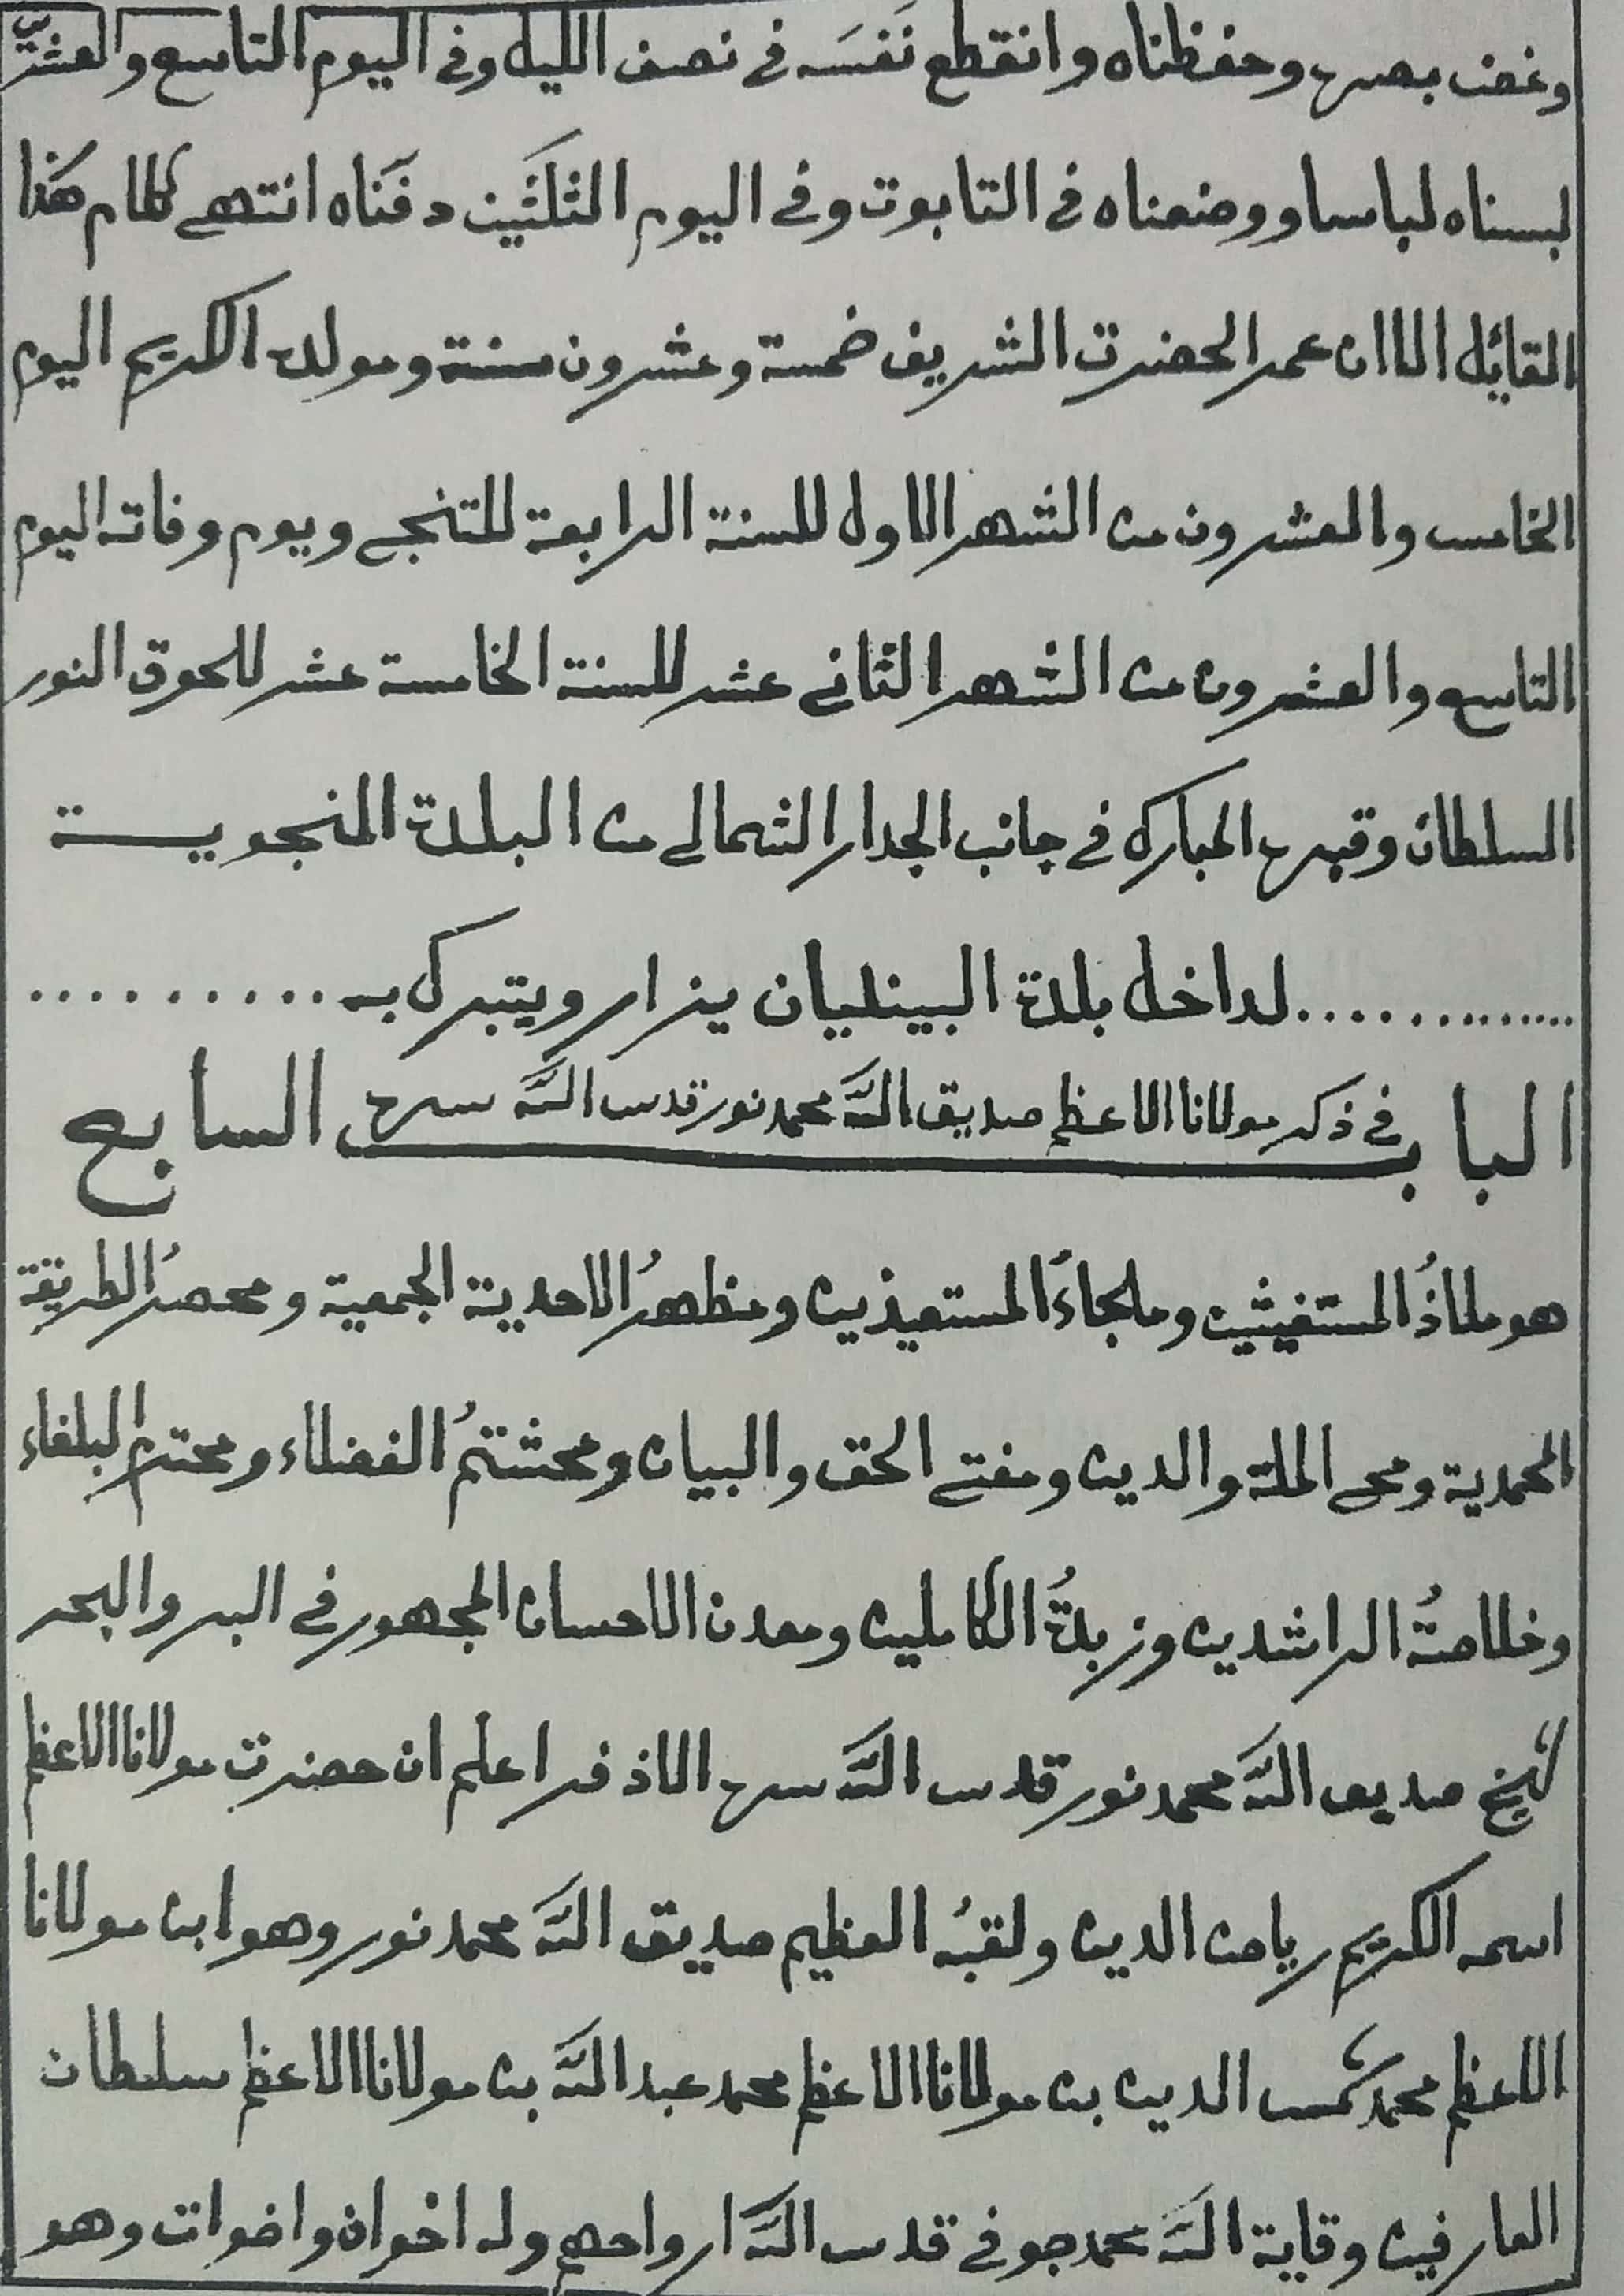 وغض بصره وحفظناه وانقطع نَفَسَه في نصف الليل وفي اليوم التاسع والعشر
لبسناه لباسا ووضعناه في التابوت وفي اليوم الثلثين دفناه انتهى كلام هذا
القائل الاان عمر الحضرت الشريف خمسة وعشرون سنة ومولده الكريم اليوم
الخامس والعشرون من الشهر الاول للسنة الرابعة للتنجي ويوم وفاته اليوم
التاسع والعشرون من الشهر الثاني عشر للسنة الخامسة عشر للحوق النور
السلطان وقبره المبارك في جانب الجدار الشمالي من البلدة المنجوية
..............لداخل بلدة البينليان يزار ويتبرك به..........
الباب في ذكر مولانا الاعظم صديق الله محمد نور قدس الله سره السابع
هو ملاذُ المستغيثين وملجاءُ المستعيذين ومظهرُ الاحدية الجمعية ومحصرُ الطريقة
المحمدية ومحي الملة والدين ومفتي الحق والبيان ومحشتمُ الفضلاء ومحترمُ البلغاء
وخلاصةُ الراشدين وزبدةُ الكاملين ومعدن الاحسان المجهور في البر والبحر
الشيخ صديق الله محمد نور قدس الله سره الاذفر اعلم ان حضرت مولانا الاعظم
اسمه الكريم رياض الدين ولقبُه العظيم صديق الله محمد نور وهو ابن مولانا
الاعظم محمد شمس الدين بن مولانا الاعظم محمد عبد الله بن مولانا الاعظم سلطان
العارفين وقاية الله محمد جوفي قدس الله ارواحهم وله اخوان واخوات وهو